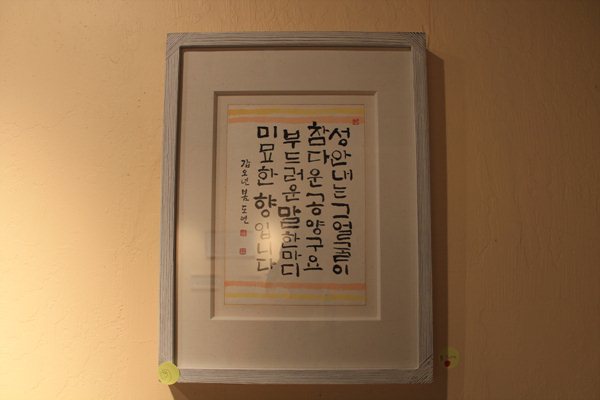 성안내는그얼굴이
참다운공양구요
부드러운말한마디
미묘한향입니다
갑오년봄도연